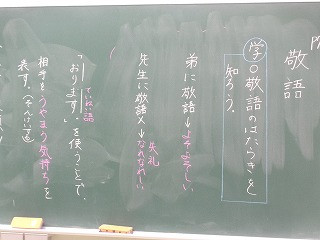 敬語
学 敬語のはたらきを
知ろう。
弟に敬語→よそよそしい
先生に敬語×→失礼
なれなれしい
ていねい語
「おります。」を使うことで、
相手をうやまう気持ちを
表す。